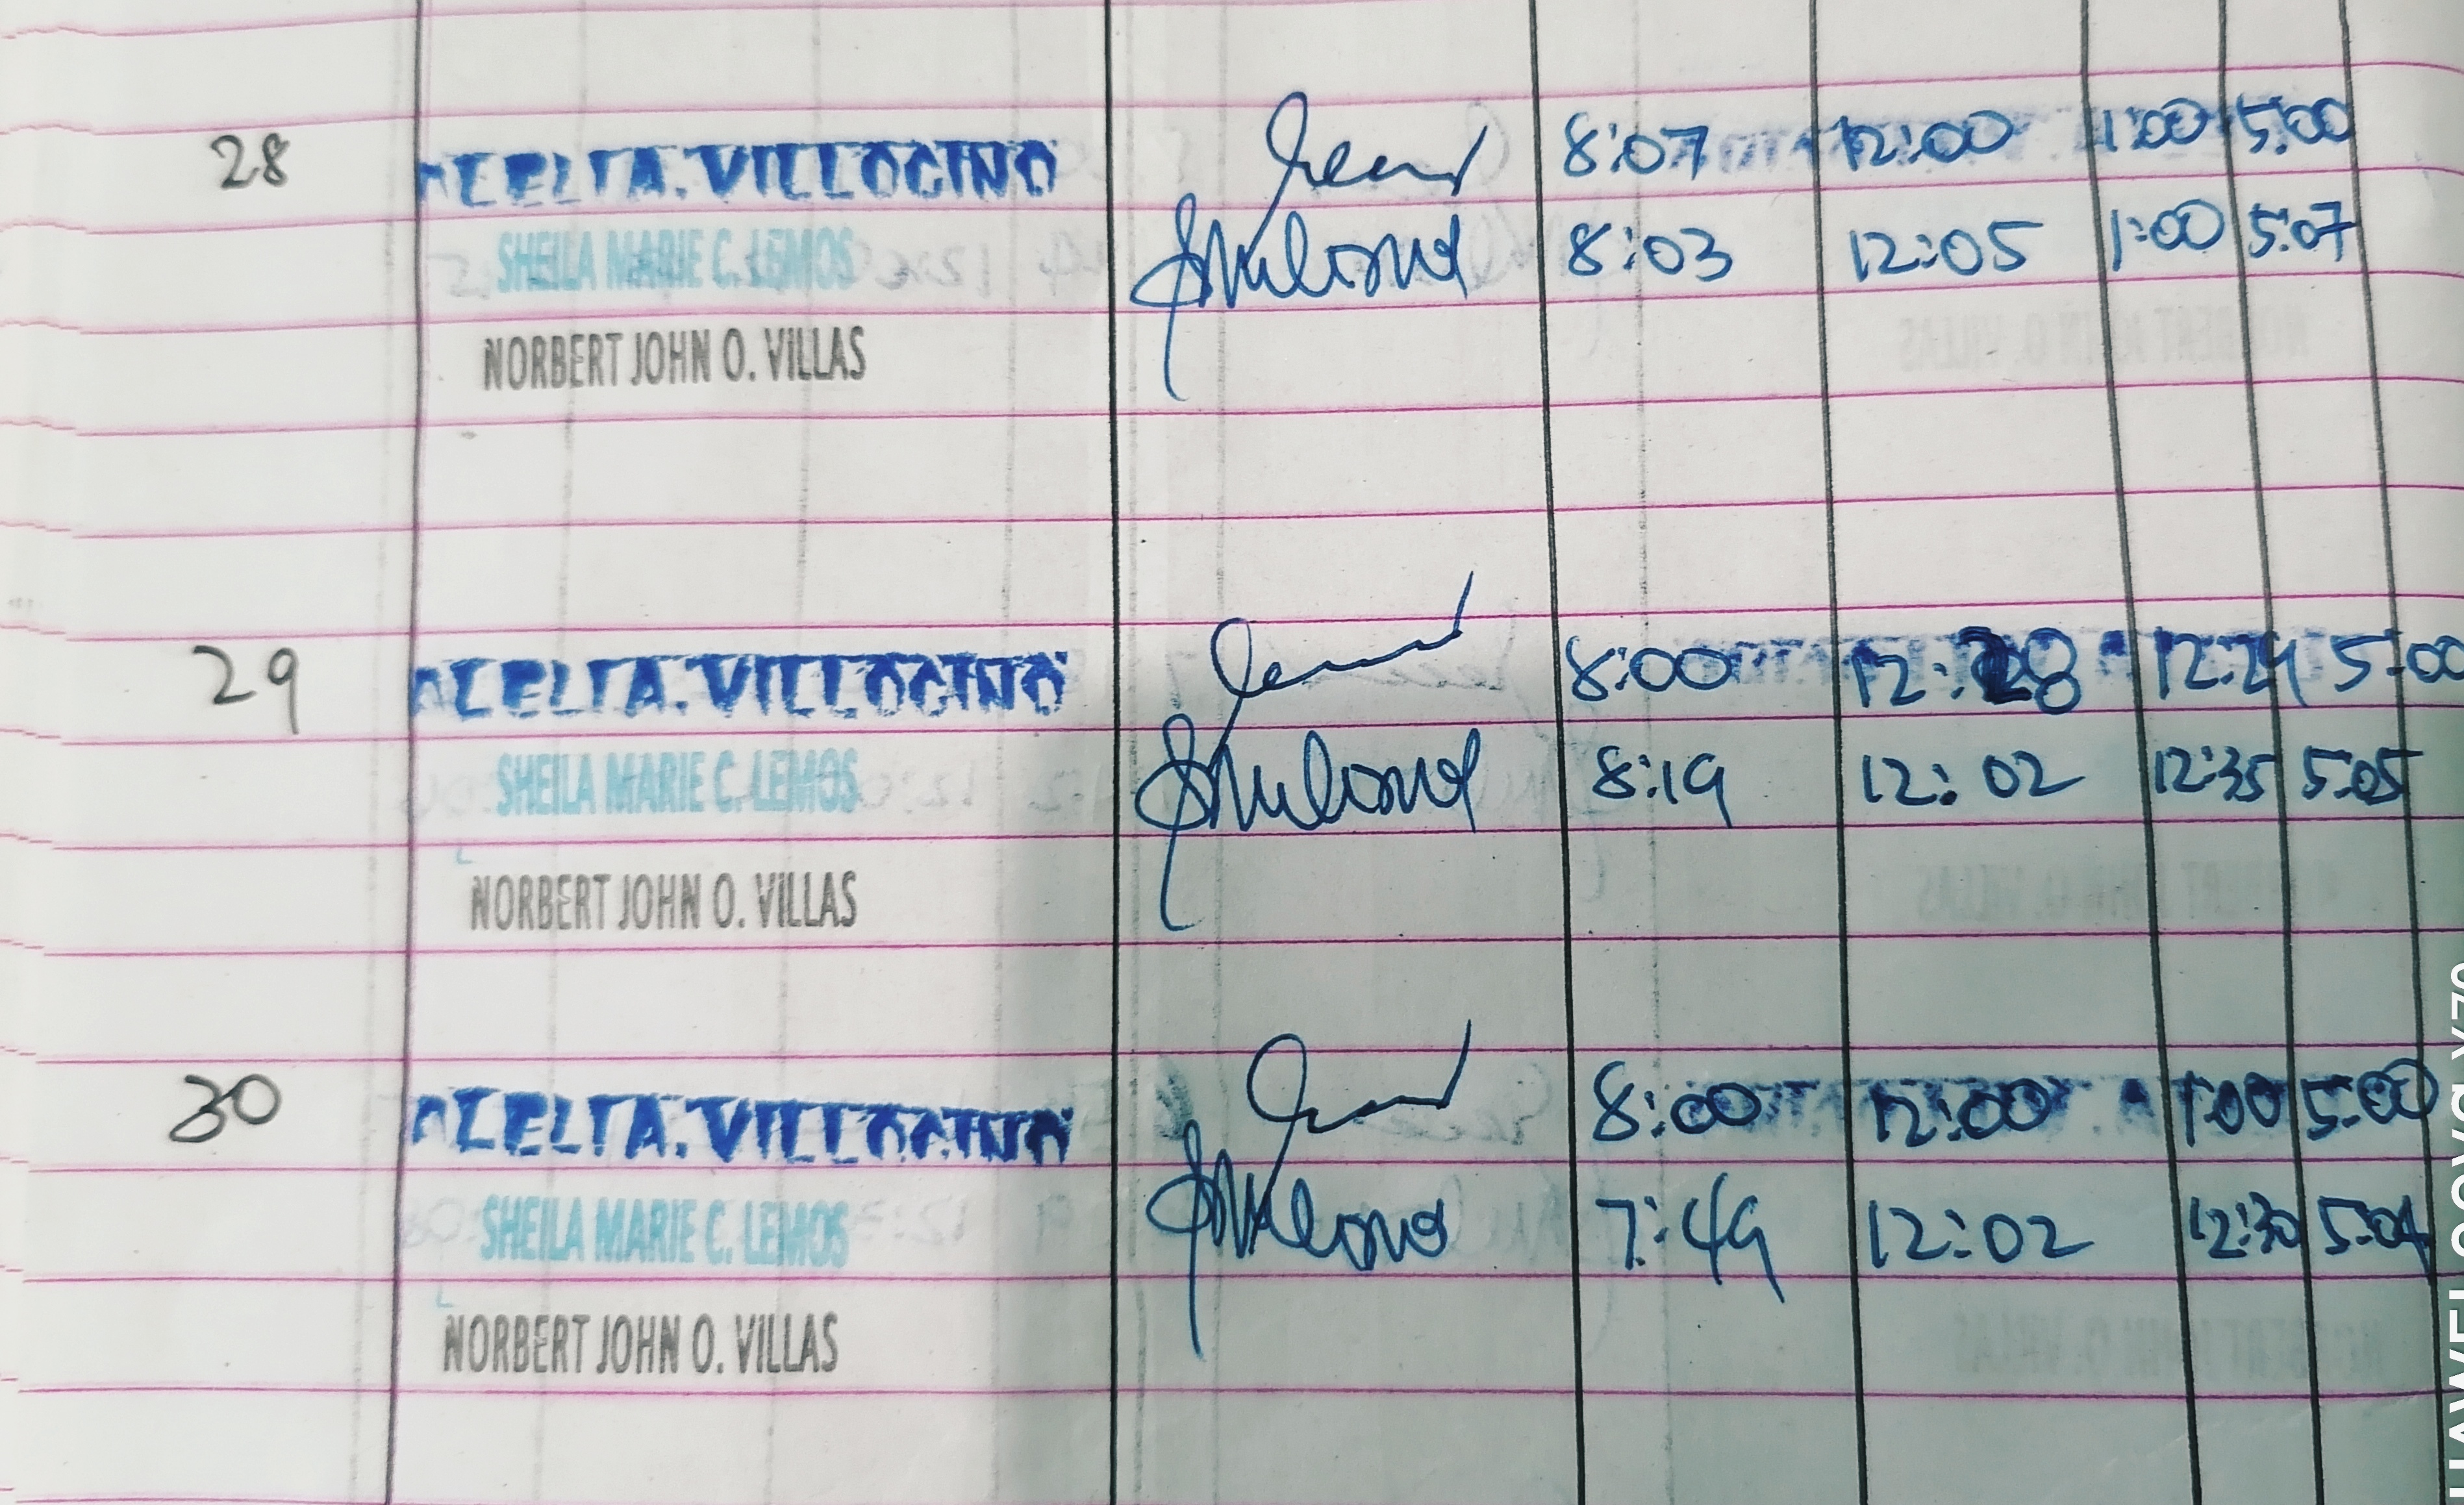 28 VILLOCINO 8:07 12:00 1:00 5:00
SHEILA MARIE C. LEMOS 8:03 12:05 1:00 5:07
NORBERT JOHN O. VILLAS
29 VILLOCINO 8:00 12:28 12:29 5:00
SHEILA MARIE C. LEMOS 8:19 12:02 12:35 5:05
NORBERT JOHN O. VILLAS
30 VILLOCINO 8:00 12:00 1:00 5:00
SHEILA MARIE C. LEMOS 7:49 12:02 12:30 5:04
NORBERT JOHN O. VILLAS